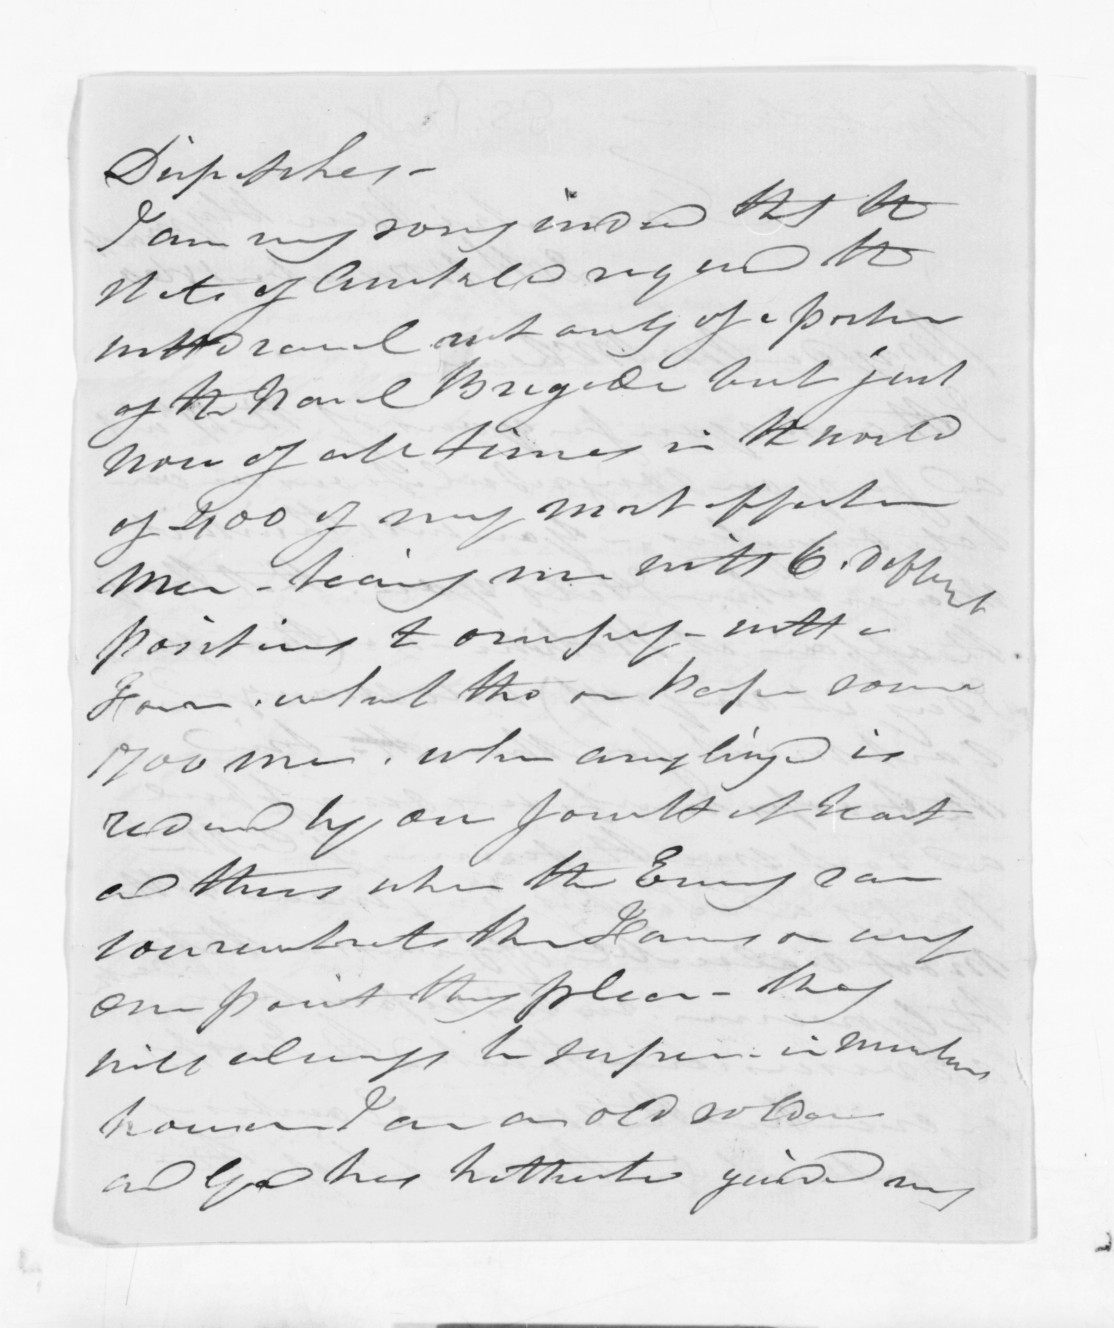 Dispatches -
I am very sorry indeed that the
State of Auckland required the
withdrawal not only of a portion
of the Naval Brigade but just
now of all times in the world
of 400 of my most effective
Men - leaving me with 6. Different
positions to occupy - with a
Force. what tho on paper some
1700 men. when analized is
reduced by one fourth at least
and thus when the Enemy can
concentrate their Forces on any
one point they please - they
will always be superior in numbers
however I am an old soldier
and God has hitherto guided my